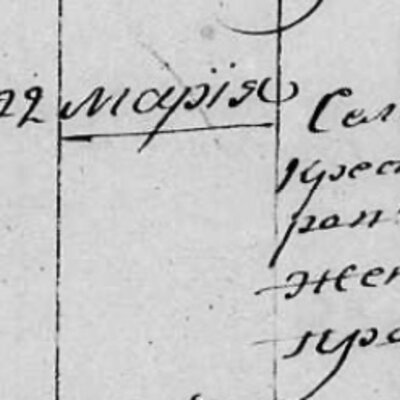 22 Марія Сел
крес
рон
жен
пра